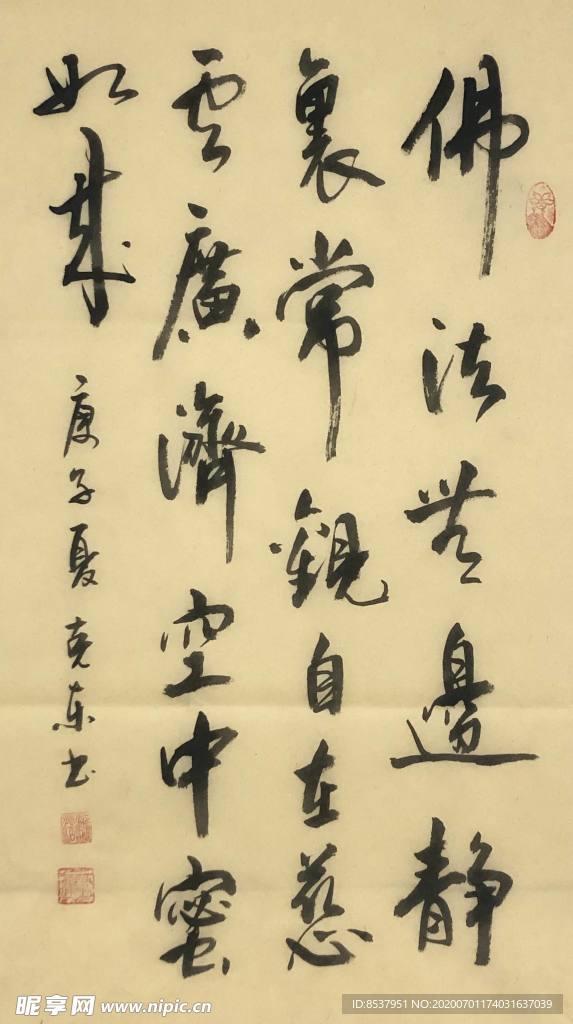 佛法無邊静
裏常觀自在慈
雲廣濟空中蜜
如來
庚子夏克東书
昵享网 www.nipic.cn
ID:8537951 NO:20200701174031637039